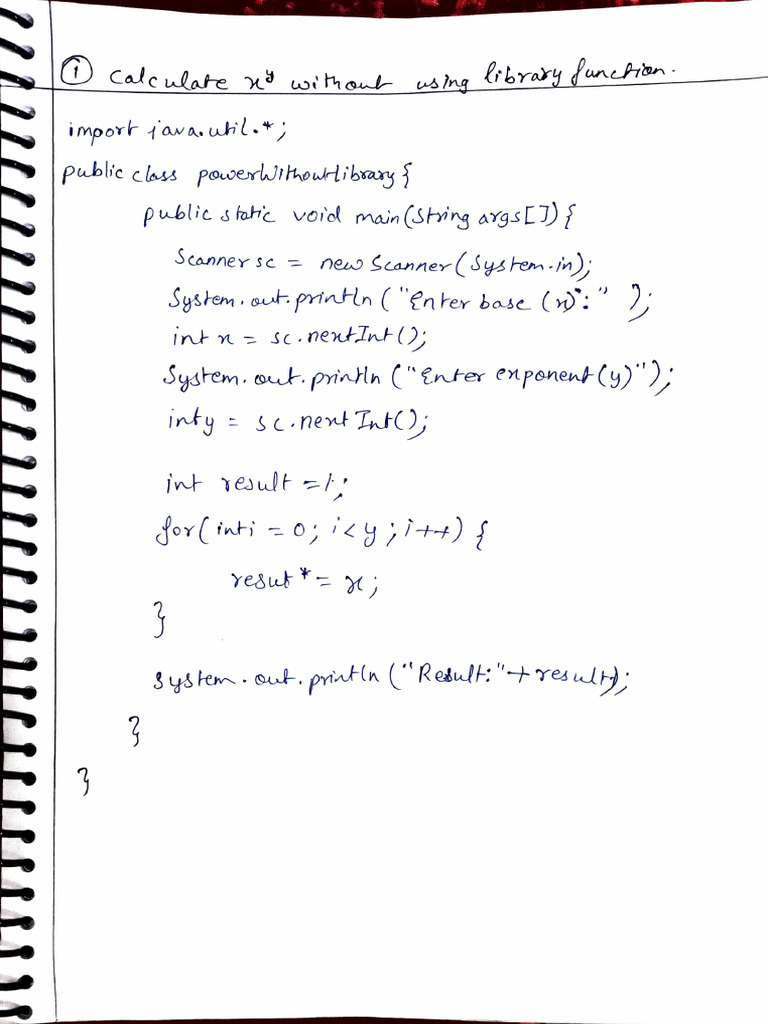 ① Calculate xʸ without using library function.
import java.util.*;
public class powerWithoutlibrary{
public static void main(String args[]){
Scanner sc = new Scanner(System.in);
System.out.println("Enter base (x):");
int x = sc.nextInt();
System.out.println("Enter exponent(y)");
int y = sc.nextInt();
int result = 1;
for(int i = 0; i<y; i++) {
resut *= x;
}
System.out.println("Result:"+result);
}
}